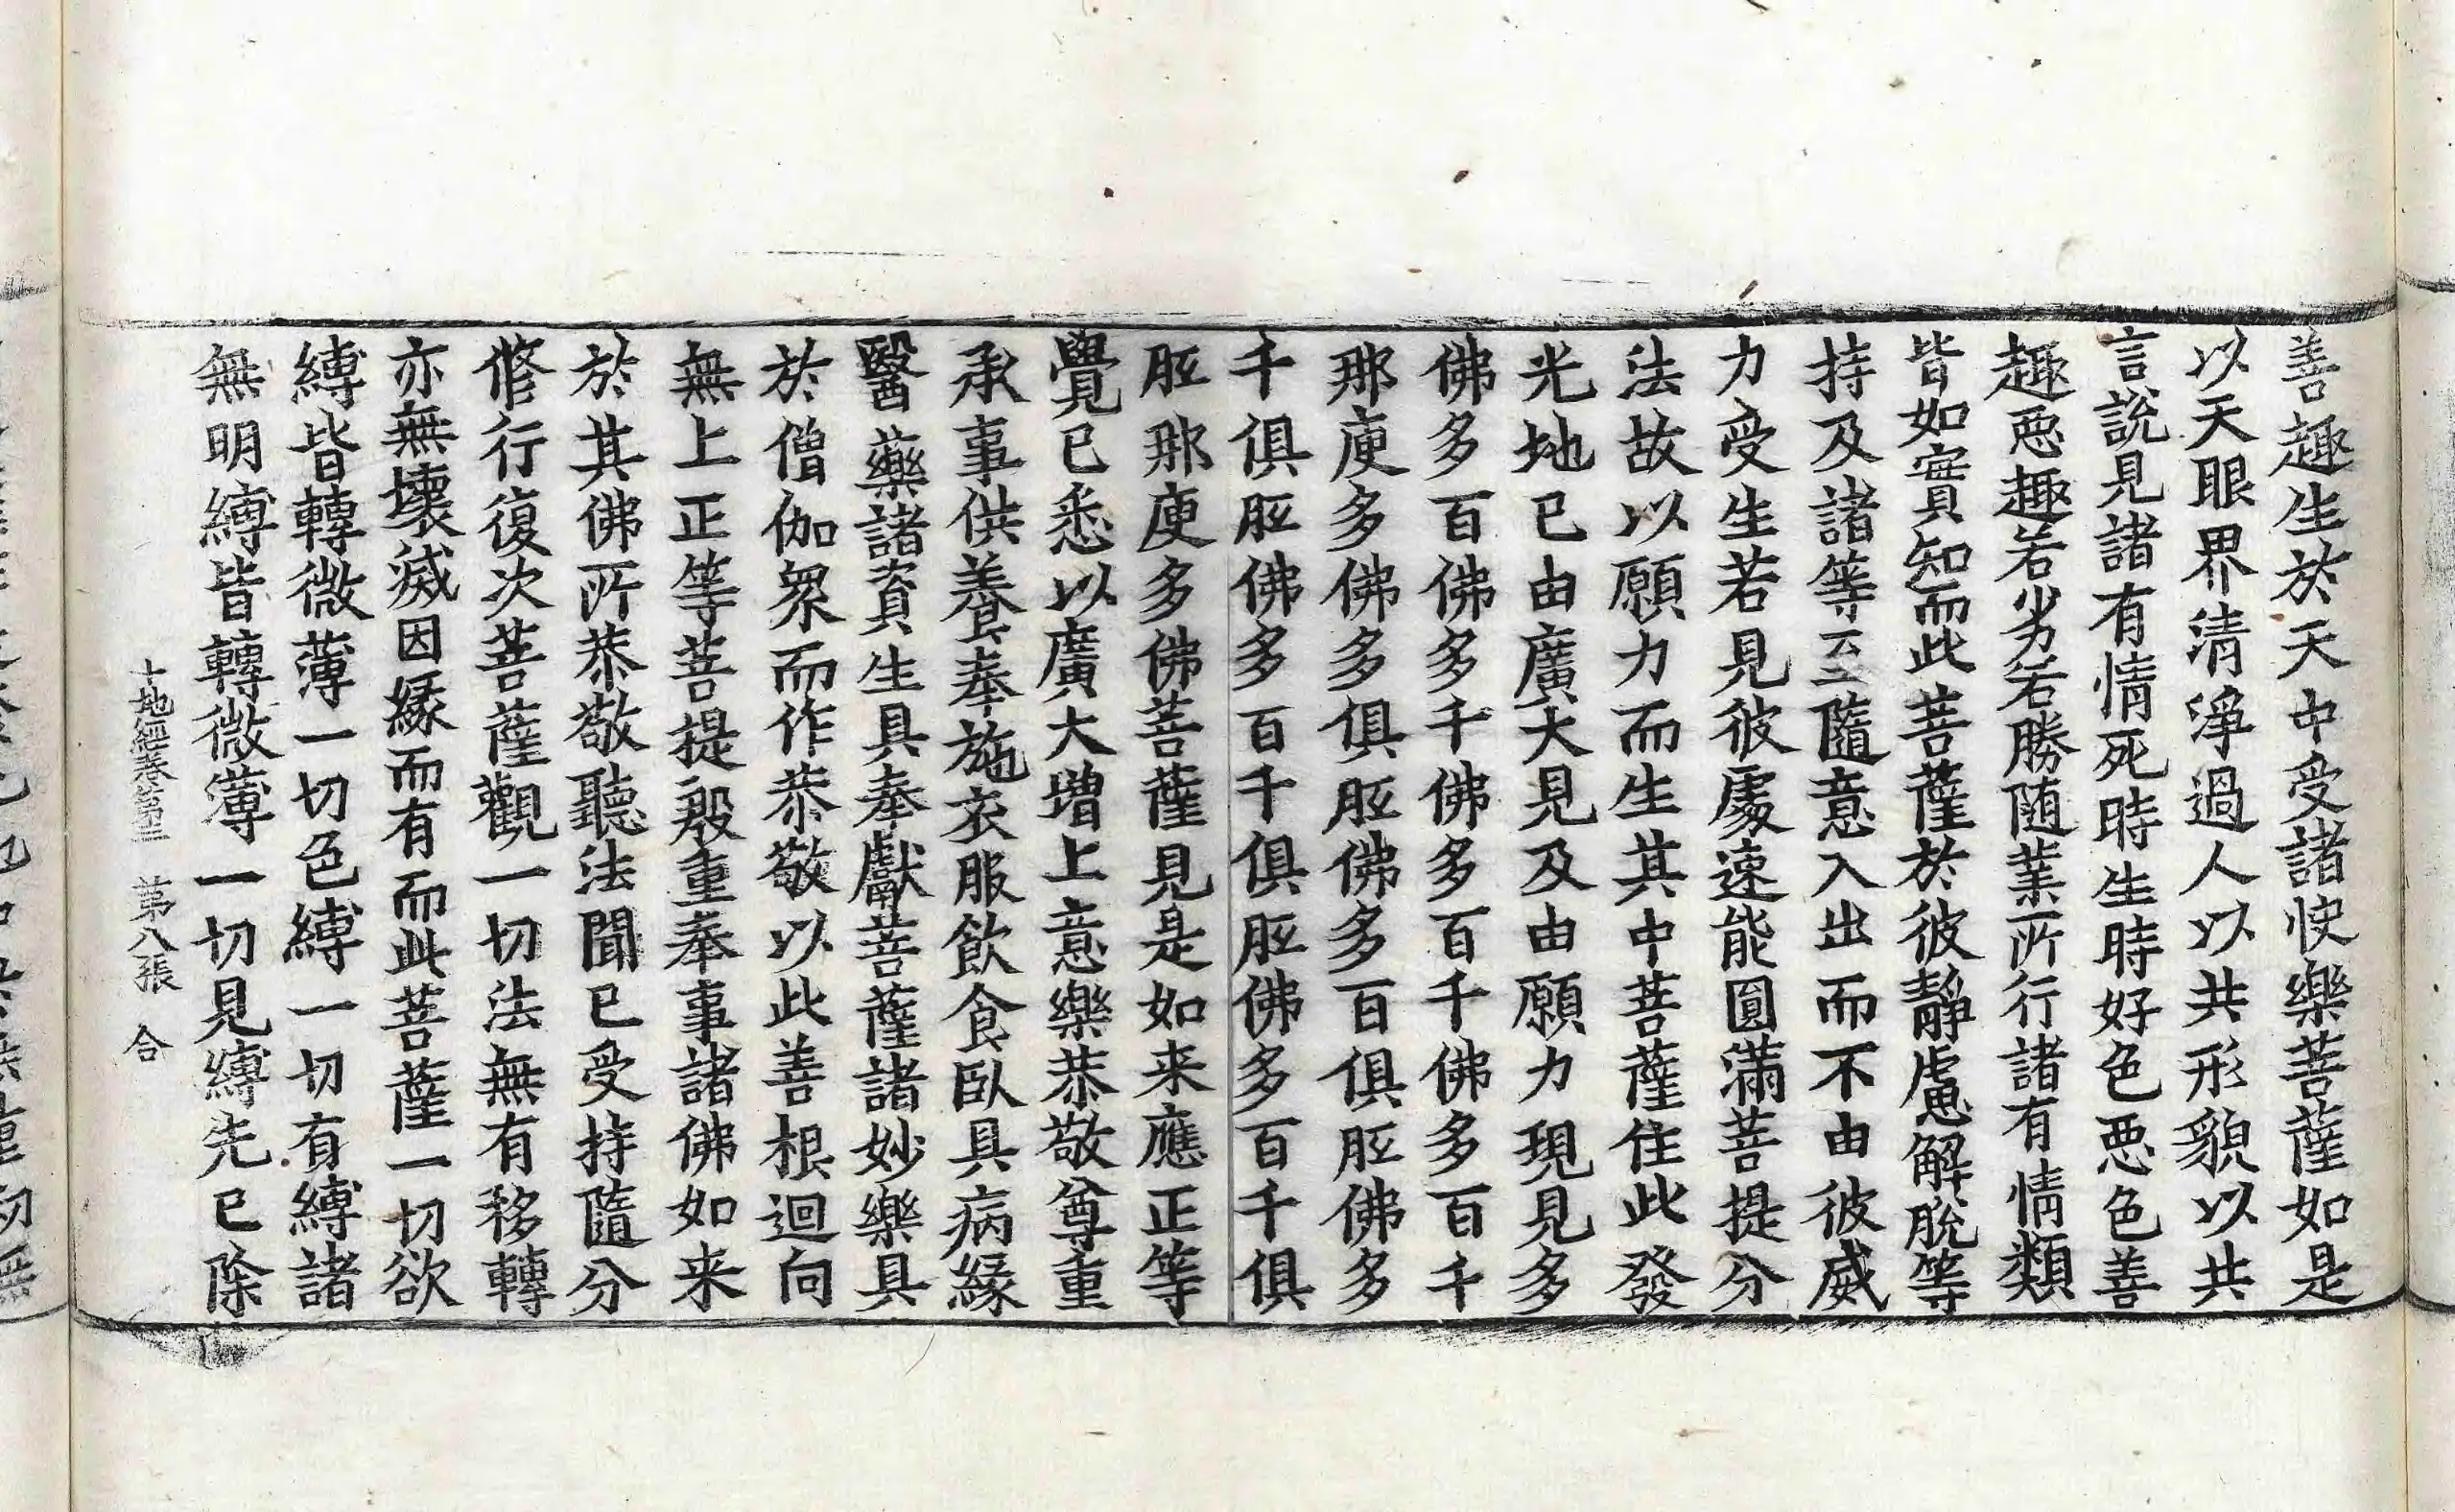 善趣生於天中受諸快樂菩薩如是
以天眼界清淨過人以共形貌以共
言說見諸有情死時生時好色惡色善
趣惡趣若劣若勝随業所行諸有情類
皆如實知而此菩薩於彼靜慮解脫等
持及諸等至隨意入出而不由彼威
力受生若見彼處速能圓滿菩提分
法故以願力而生其中菩薩住此發
光地已由廣大見及由願力現見多
佛多百佛多千佛多百千佛多百千
那庾多佛多俱胝佛多百俱胝佛多
千俱胝佛多百千俱胝佛多百千俱
胝那庾多佛菩薩見是如来應正等
覺已悉以廣大增上意樂恭敬尊重
承事供養奉施衣服飲食臥具病緣
醫藥諸資生具奉獻菩薩諸妙樂具
於僧伽眾而作恭敬以此善根迴向
無上正等菩提殷重奉事諸佛如来
於其佛所恭敬聽法聞已受持隨分
修行復次菩薩觀一切法無有移轉
亦無壞滅因緣而有而此菩薩一切欲
縛皆轉微薄一切色縛一切有縛諸
無明縛皆轉微薄一切見縛先已除
十地經卷第三 第八張 合